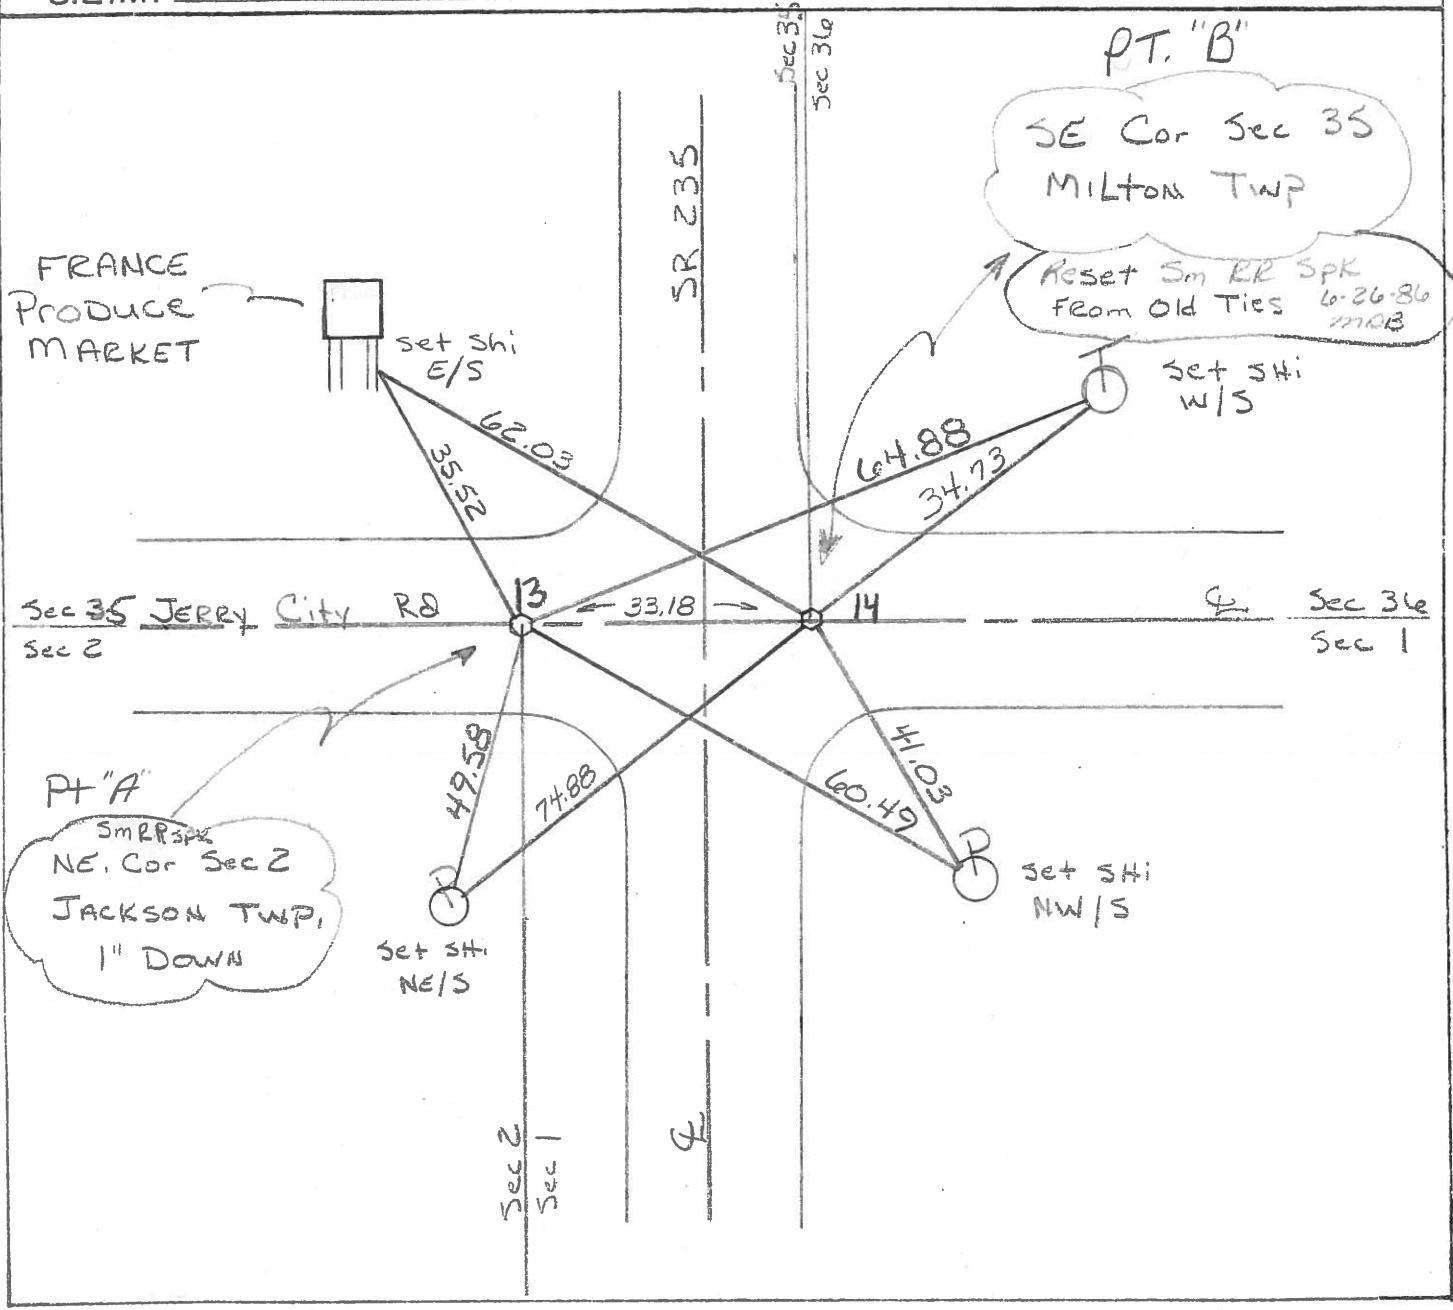 Sec 35
Sec 36
PT. "B"
SE Cor Sec 35
MILTON TWP
Reset Sm RR Spk
From Old Ties 6-26-86
SR 235
FRANCE
PRODUCE
MARKET
set shi
E/S
set SHi
W/S
62.03
35.52
64.88
34.73
13
33.18
14
Sec 35 JERRY City Rd
Sec 2
℄
Sec 36
Sec 1
49.58
74.88
60.49
41.03
Pt "A"
Sm RR spk
NE. Cor Sec 2
JACKSON TWP,
1" DOWN
set SHi
NE/S
set SHi
NW/S
Sec 2
Sec 1
℄